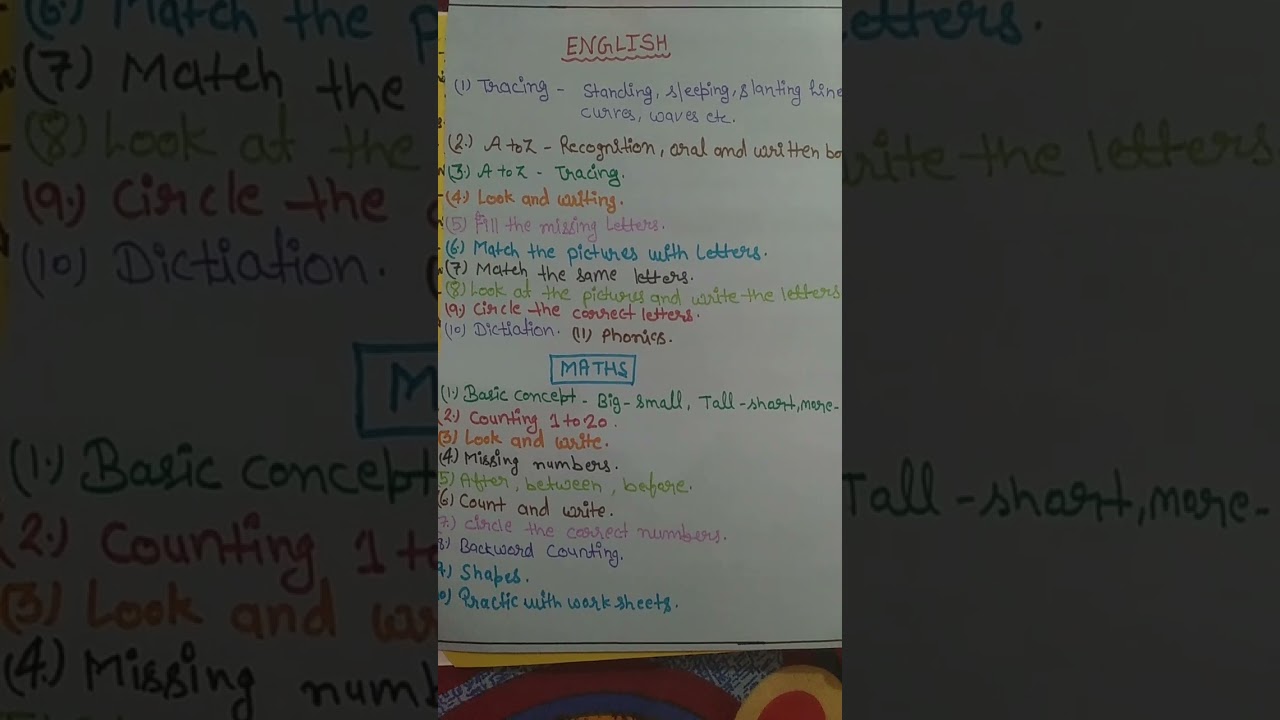 ENGLISH
(1) Tracing - Standing, sleeping, slanting line
curves, waves etc.
(2.) A to Z - Recognition, oral and written bo
(3.) A to Z - Tracing.
(4.) Look and writing.
(5) Fill the missing letters.
(6) Match the pictures with letters.
(7) Match the same letters.
(8) Look at the pictures and write the letters
(9.) Circle the correct letters.
(10) Dictiation. (11) Phonics.
MATHS
(1.) Basic concept - Big-small, Tall-short, more-
(2.) Counting 1 to 20.
(3) Look and write.
(4) Missing numbers.
5) After, between, before.
(6) Count and write.
7.) Circle the correct numbers.
8) Backward Counting.
9) Shapes.
0) Practic with work sheets.